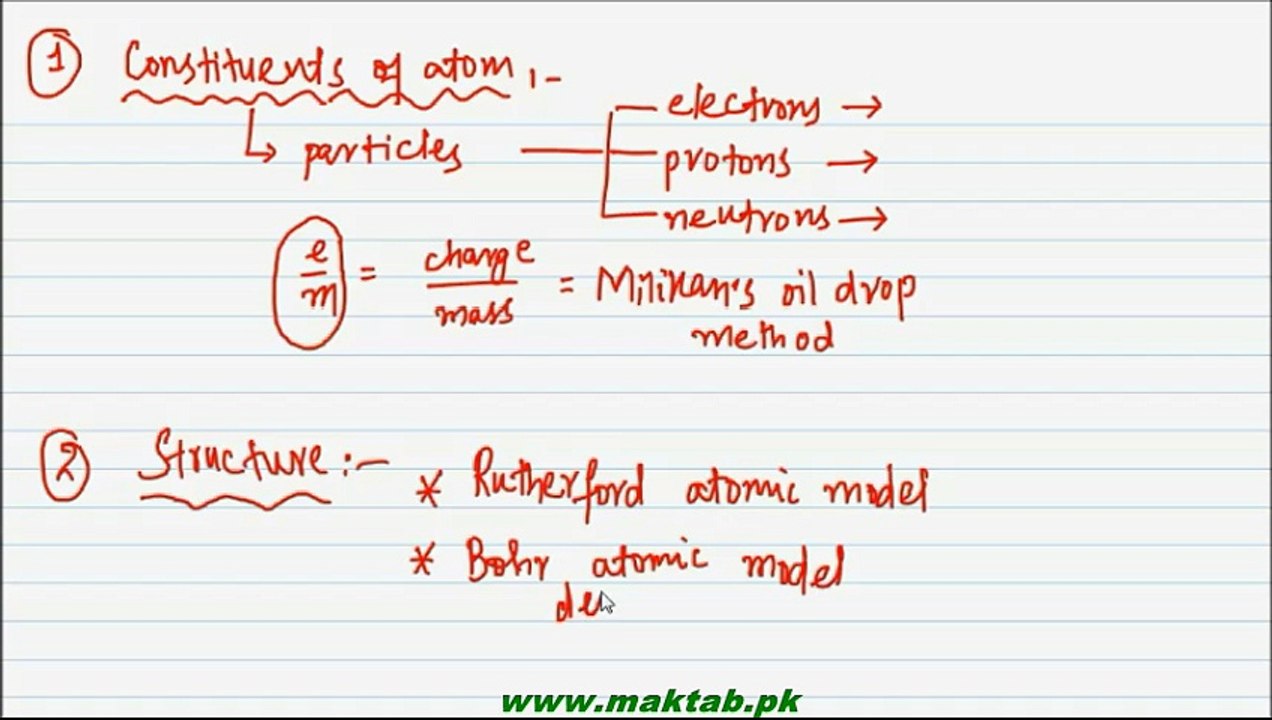 1 Constituents of atom :-
particles
electrons →
protons →
neutrons →
e/m = charge/mass = Milikan's oil drop
method
2 Structure :-
* Rutherford atomic model
* Bohr atomic model
de
www.maktab.pk